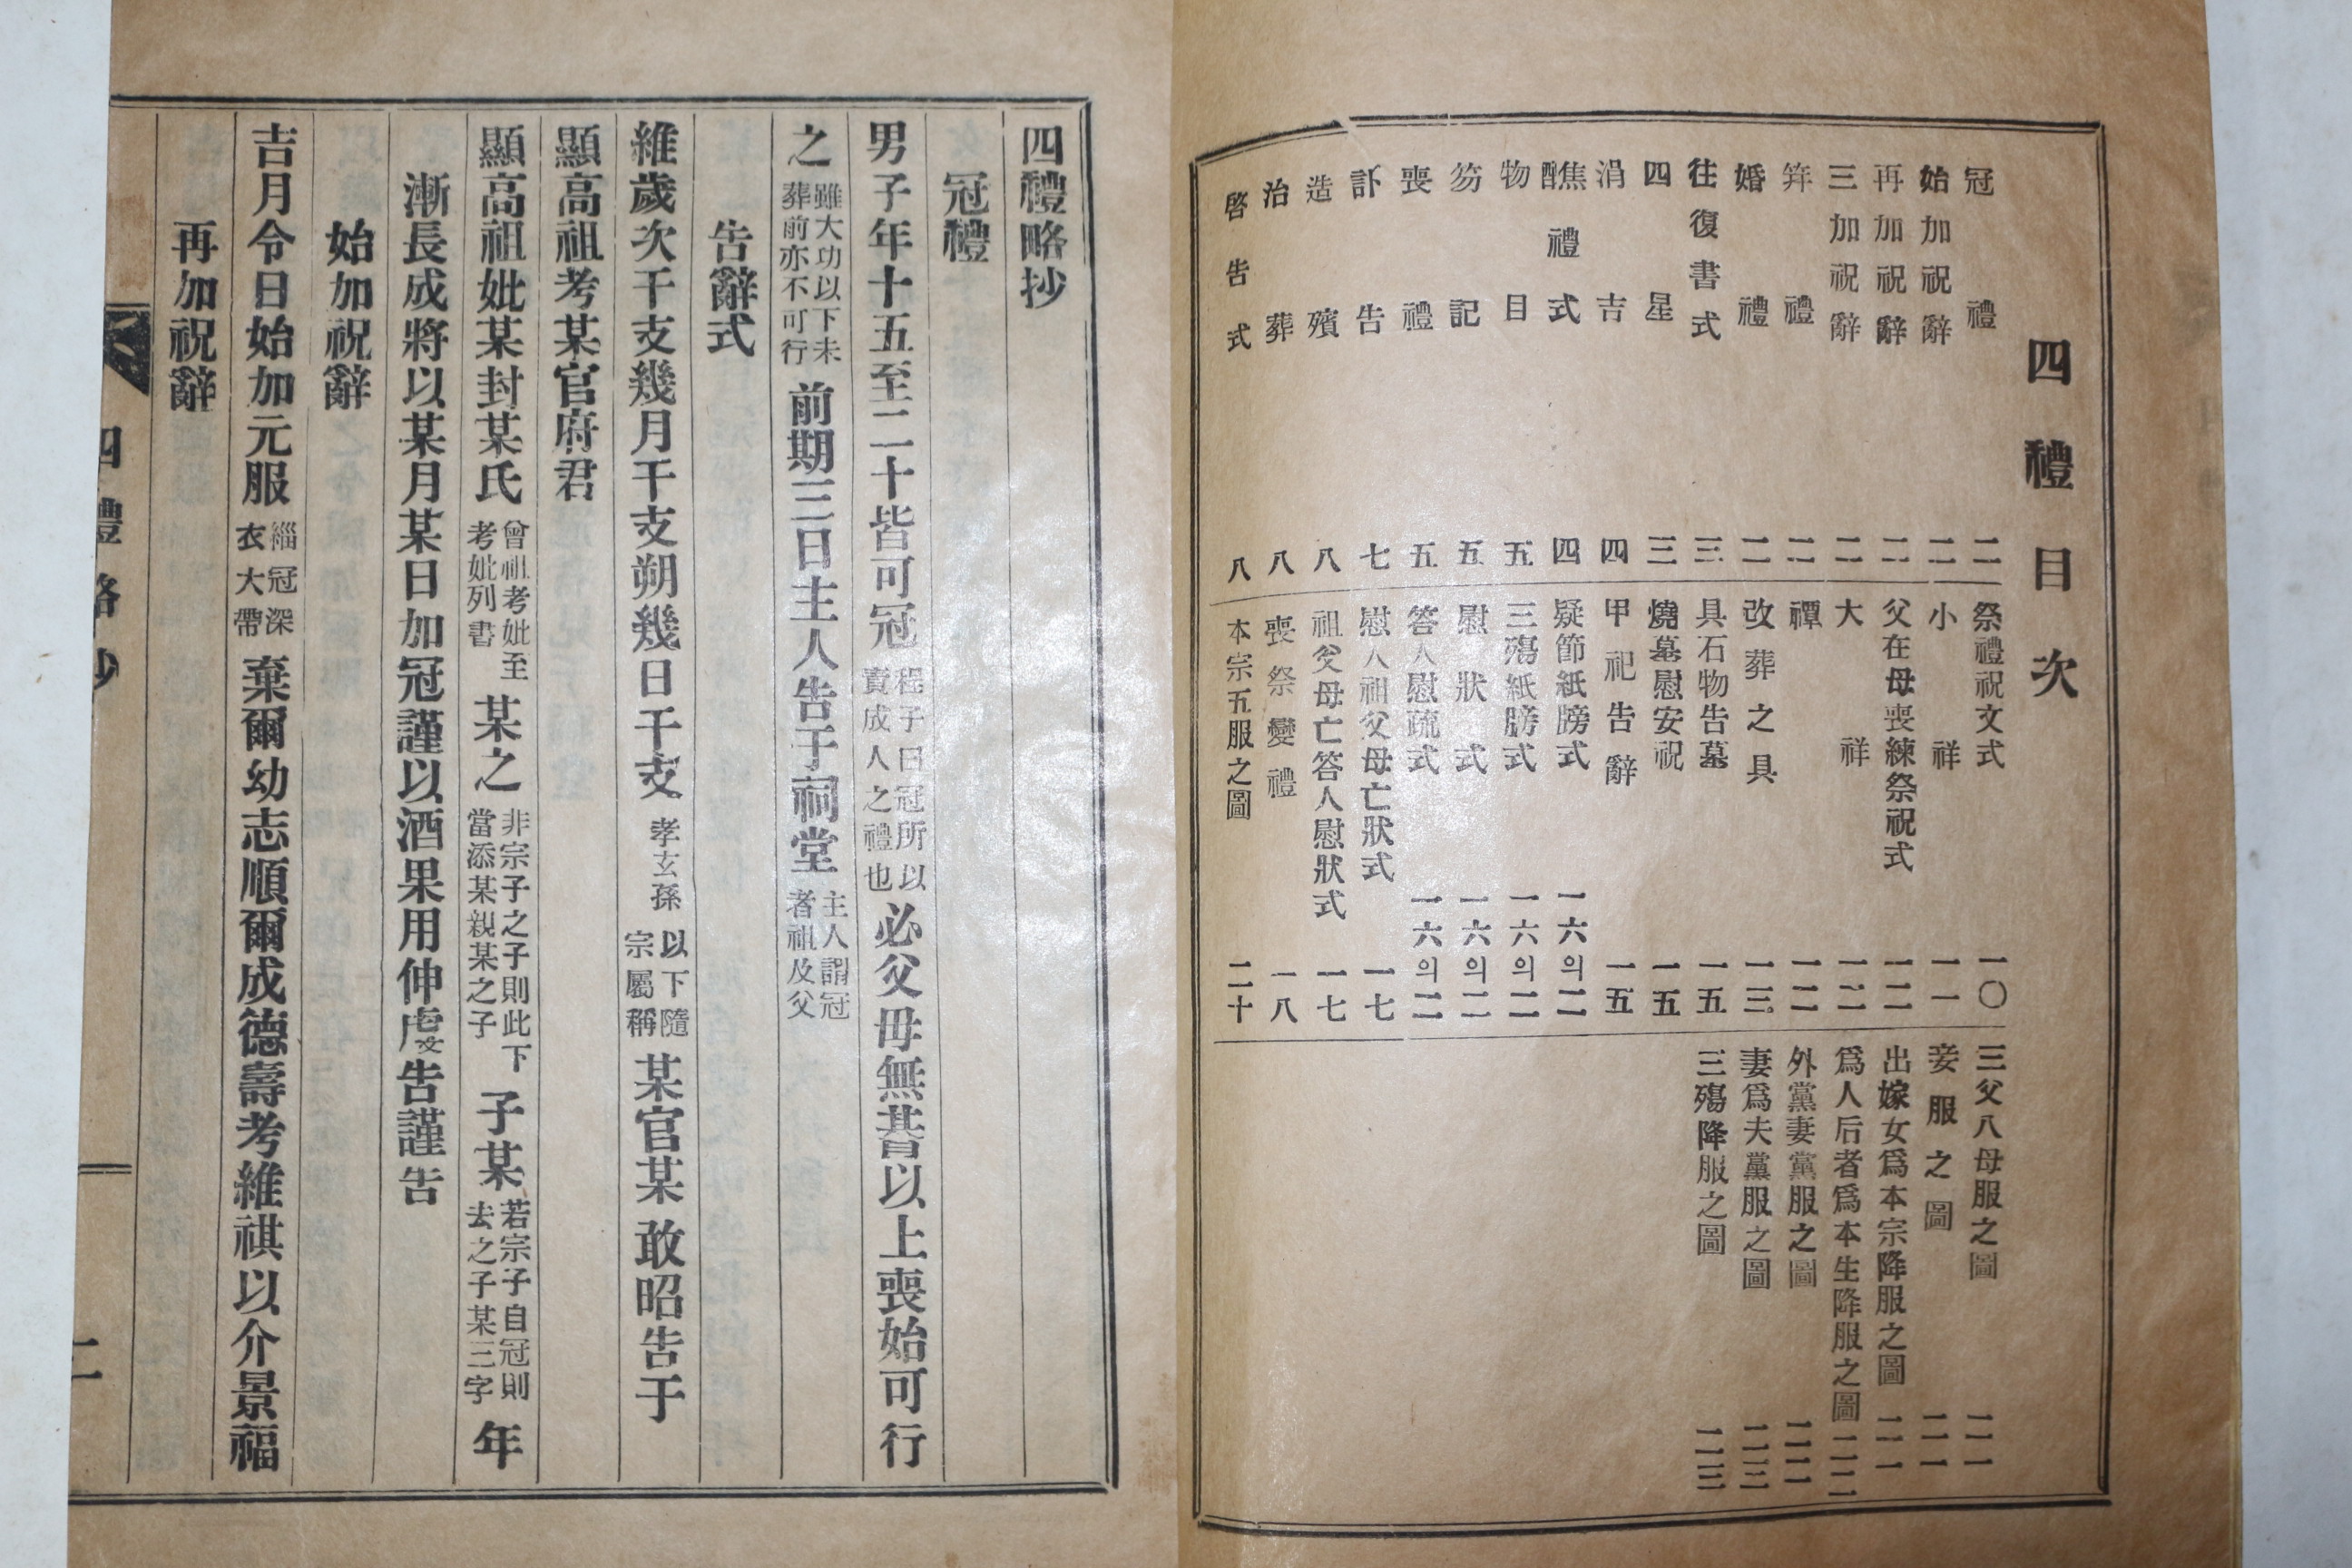 四禮目次
冠禮 二
始加祝辭 二
再加祝辭 二
三加祝辭 二
笄禮 二
婚禮 二
往復書式 三
四星 三
涓吉 四
醮禮式 四
物目 五
笏記 五
喪禮 五
訃告 七
造殯 八
治葬 八
啓告式 八
祭禮祝文式 一〇
小祥 一一
父在母喪練祭祝式 一二
大祥 一二
禫 一二
改葬之具 一三
具石物告墓 一五
燒墓慰安祝 一五
甲祀告辭 一五
疑節紙牓式 一六의二
三殤紙牓式 一六의二
慰狀式 一六의二
答人慰疏式 一六의二
慰人祖父母亡狀式 一七
祖父母亡答人慰狀式 一七
喪祭變禮 一八
本宗五服之圖 二十
三父八母服之圖 二一
妾服之圖 二一
出嫁女爲本宗降服之圖 二一
爲人后者爲本生降服之圖 二二
外黨妻黨服之圖 二二
妻爲夫黨服之圖 二三
三殤降服之圖 二三
四禮略抄
冠禮
男子年十五至二十皆可冠 程子曰冠所以責成人之禮也 必父母無朞以上喪始可行
之 雖大功以下未葬前亦不可行 前期三日主人告于祠堂 主人謂冠者祖及父
告辭式
維歲次干支幾月干支朔幾日干支 孝玄孫 以下隨宗屬稱 某官某 敢昭告于
顯高祖考某官府君
顯高祖妣某封某氏 曾祖考妣至考妣列書 某之 非宗子之子則此下當添某親某之子 子某 若宗子自冠則去之子某三字 年
漸長成將以某月某日加冠謹以酒果用伸虔告謹告
始加祝辭
吉月令日始加元服 緇冠深衣大帶 棄爾幼志順爾成德壽考維祺以介景福
再加祝辭
四禮略抄 二